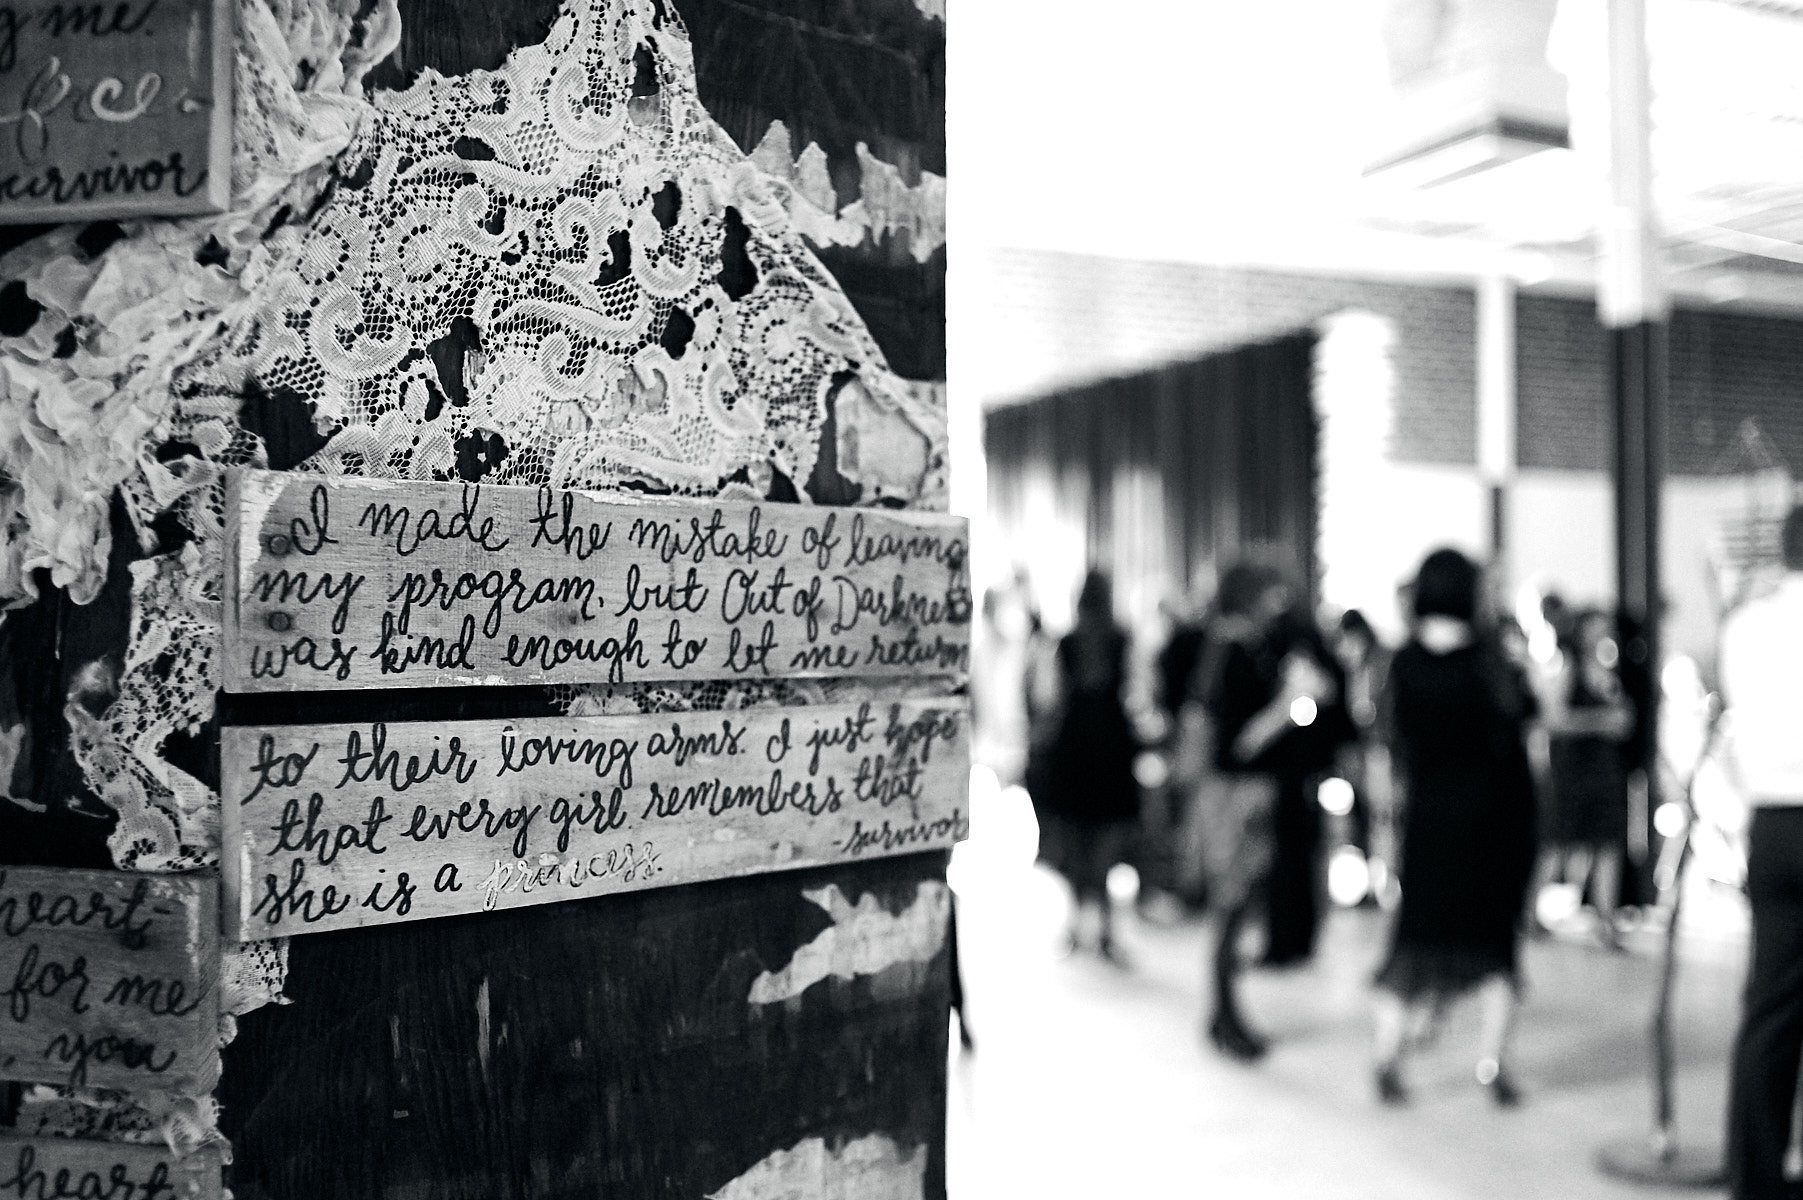 g me.
face-
survivor
I made the mistake of leaving
my program, but Out of Darkness
was kind enough to let me return
to their loving arms. I just hope
that every girl remembers that
she is a princess.
-survivor
heart-
for me
, you
heart,